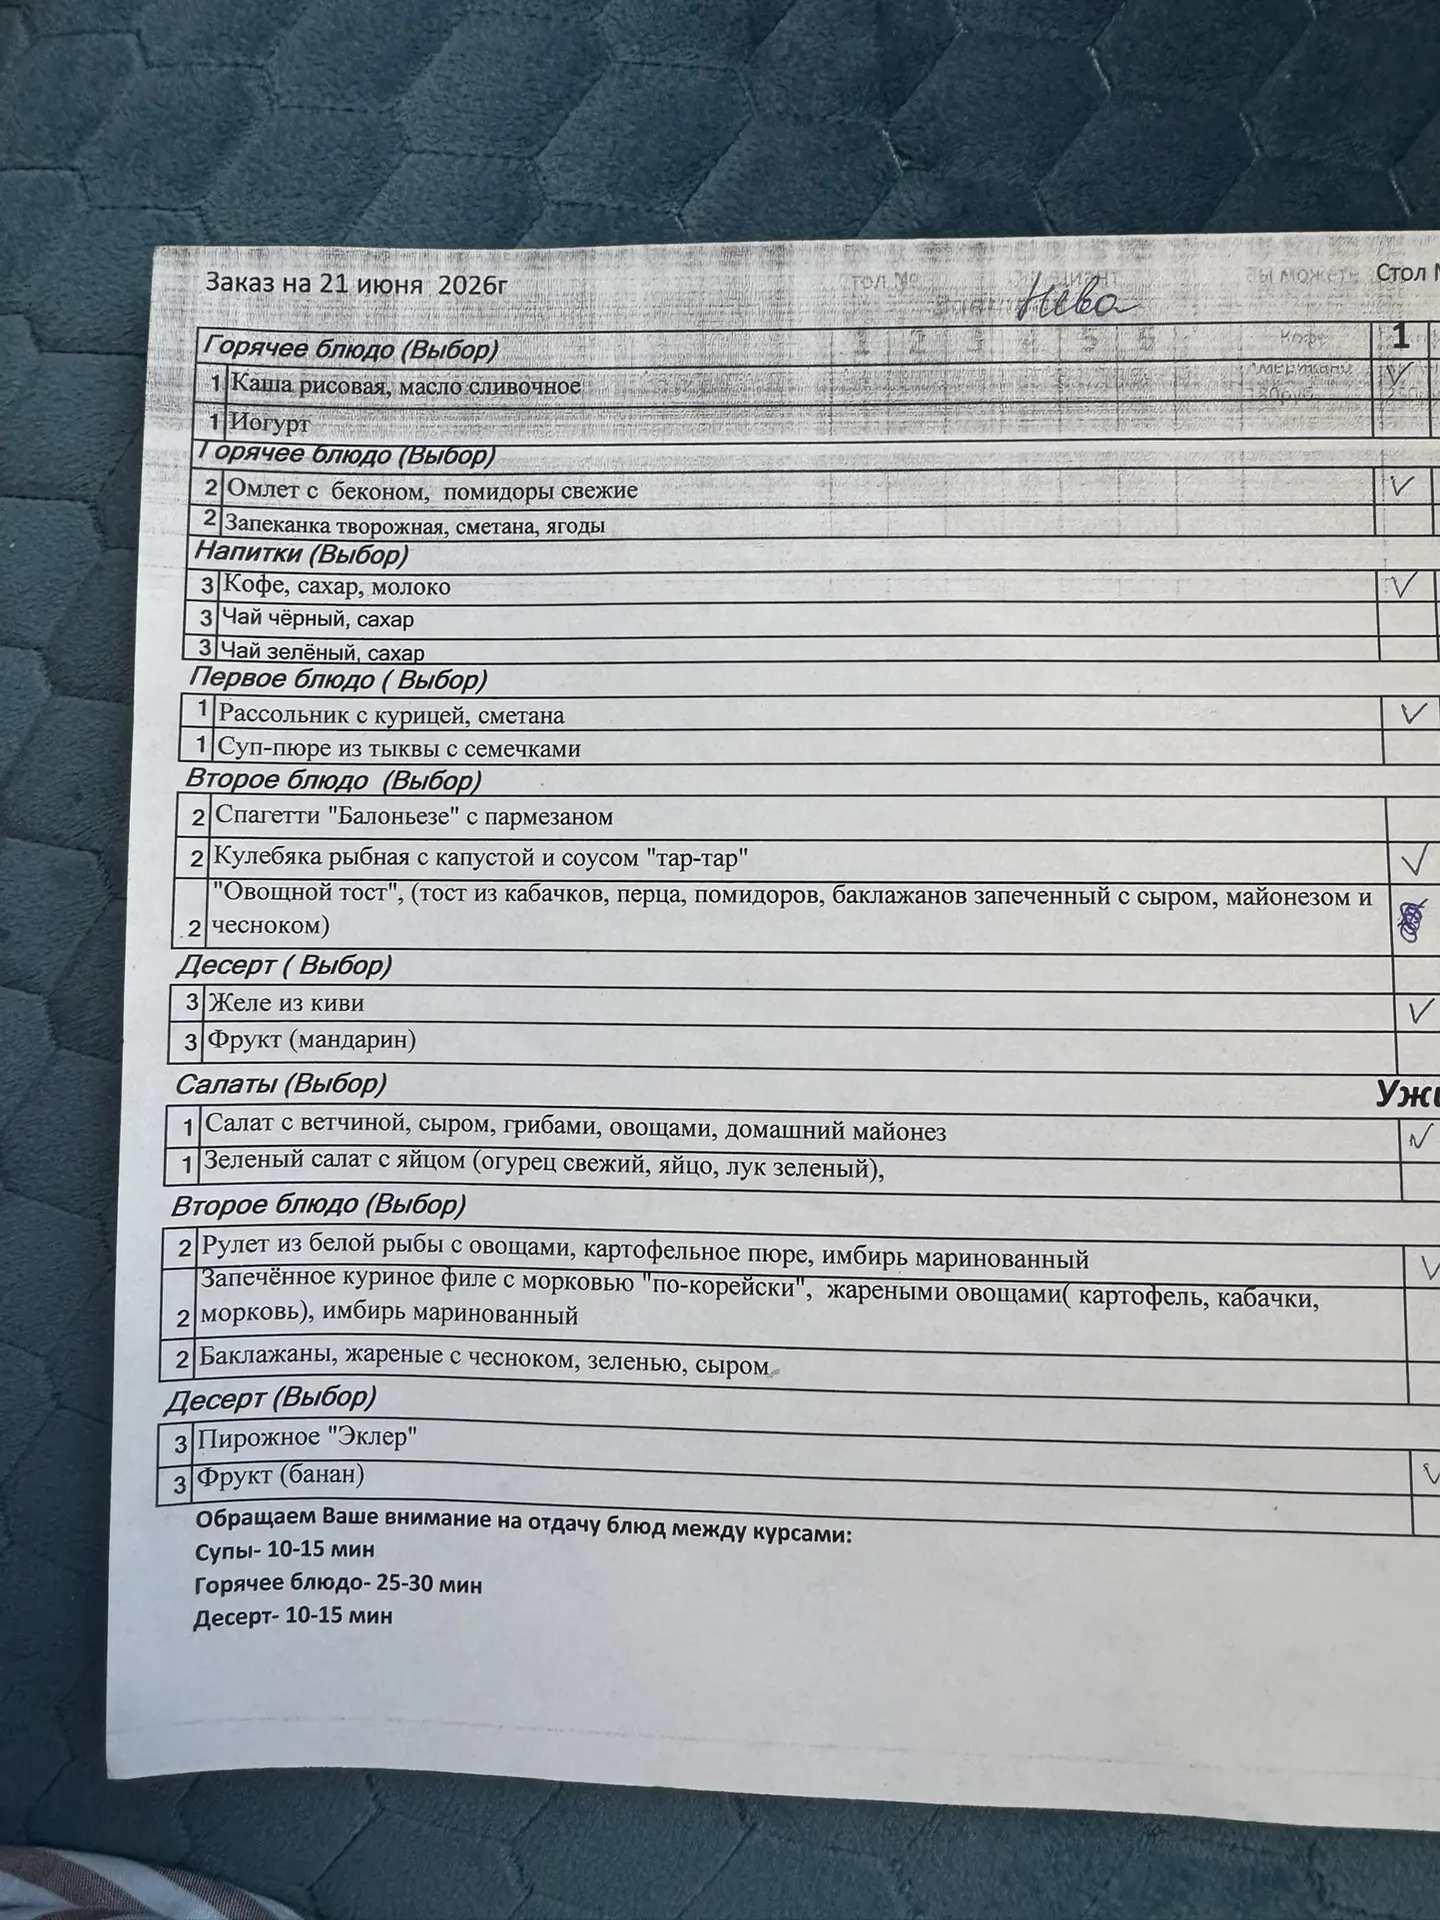 Заказ на 21 июня 2026г Нева Стол
Горячее блюдо (Выбор) 1
1 Каша рисовая, масло сливочное
1 Иогурт
Горячее блюдо (Выбор)
2 Омлет с беконом, помидоры свежие
2 Запеканка творожная, сметана, ягоды
Напитки (Выбор)
3 Кофе, сахар, молоко
3 Чай чёрный, сахар
3 Чай зелёный, сахар
Первое блюдо ( Выбор)
1 Рассольник с курицей, сметана
1 Суп-пюре из тыквы с семечками
Второе блюдо (Выбор)
2 Спагетти "Балоньезе" с пармезаном
2 Кулебяка рыбная с капустой и соусом "тар-тар"
"Овощной тост", (тост из кабачков, перца, помидоров, баклажанов запеченный с сыром, майонезом и
2 чесноком)
Десерт ( Выбор)
3 Желе из киви
3 Фрукт (мандарин)
Салаты (Выбор) Ужи
1 Салат с ветчиной, сыром, грибами, овощами, домашний майонез
1 Зеленый салат с яйцом (огурец свежий, яйцо, лук зеленый),
Второе блюдо (Выбор)
2 Рулет из белой рыбы с овощами, картофельное пюре, имбирь маринованный
Запечённое куриное филе с морковью "по-корейски", жареными овощами( картофель, кабачки,
2 морковь), имбирь маринованный
2 Баклажаны, жареные с чесноком, зеленью, сыром
Десерт (Выбор)
3 Пирожное "Эклер"
3 Фрукт (банан)
Обращаем Ваше внимание на отдачу блюд между курсами:
Супы- 10-15 мин
Горячее блюдо- 25-30 мин
Десерт- 10-15 мин